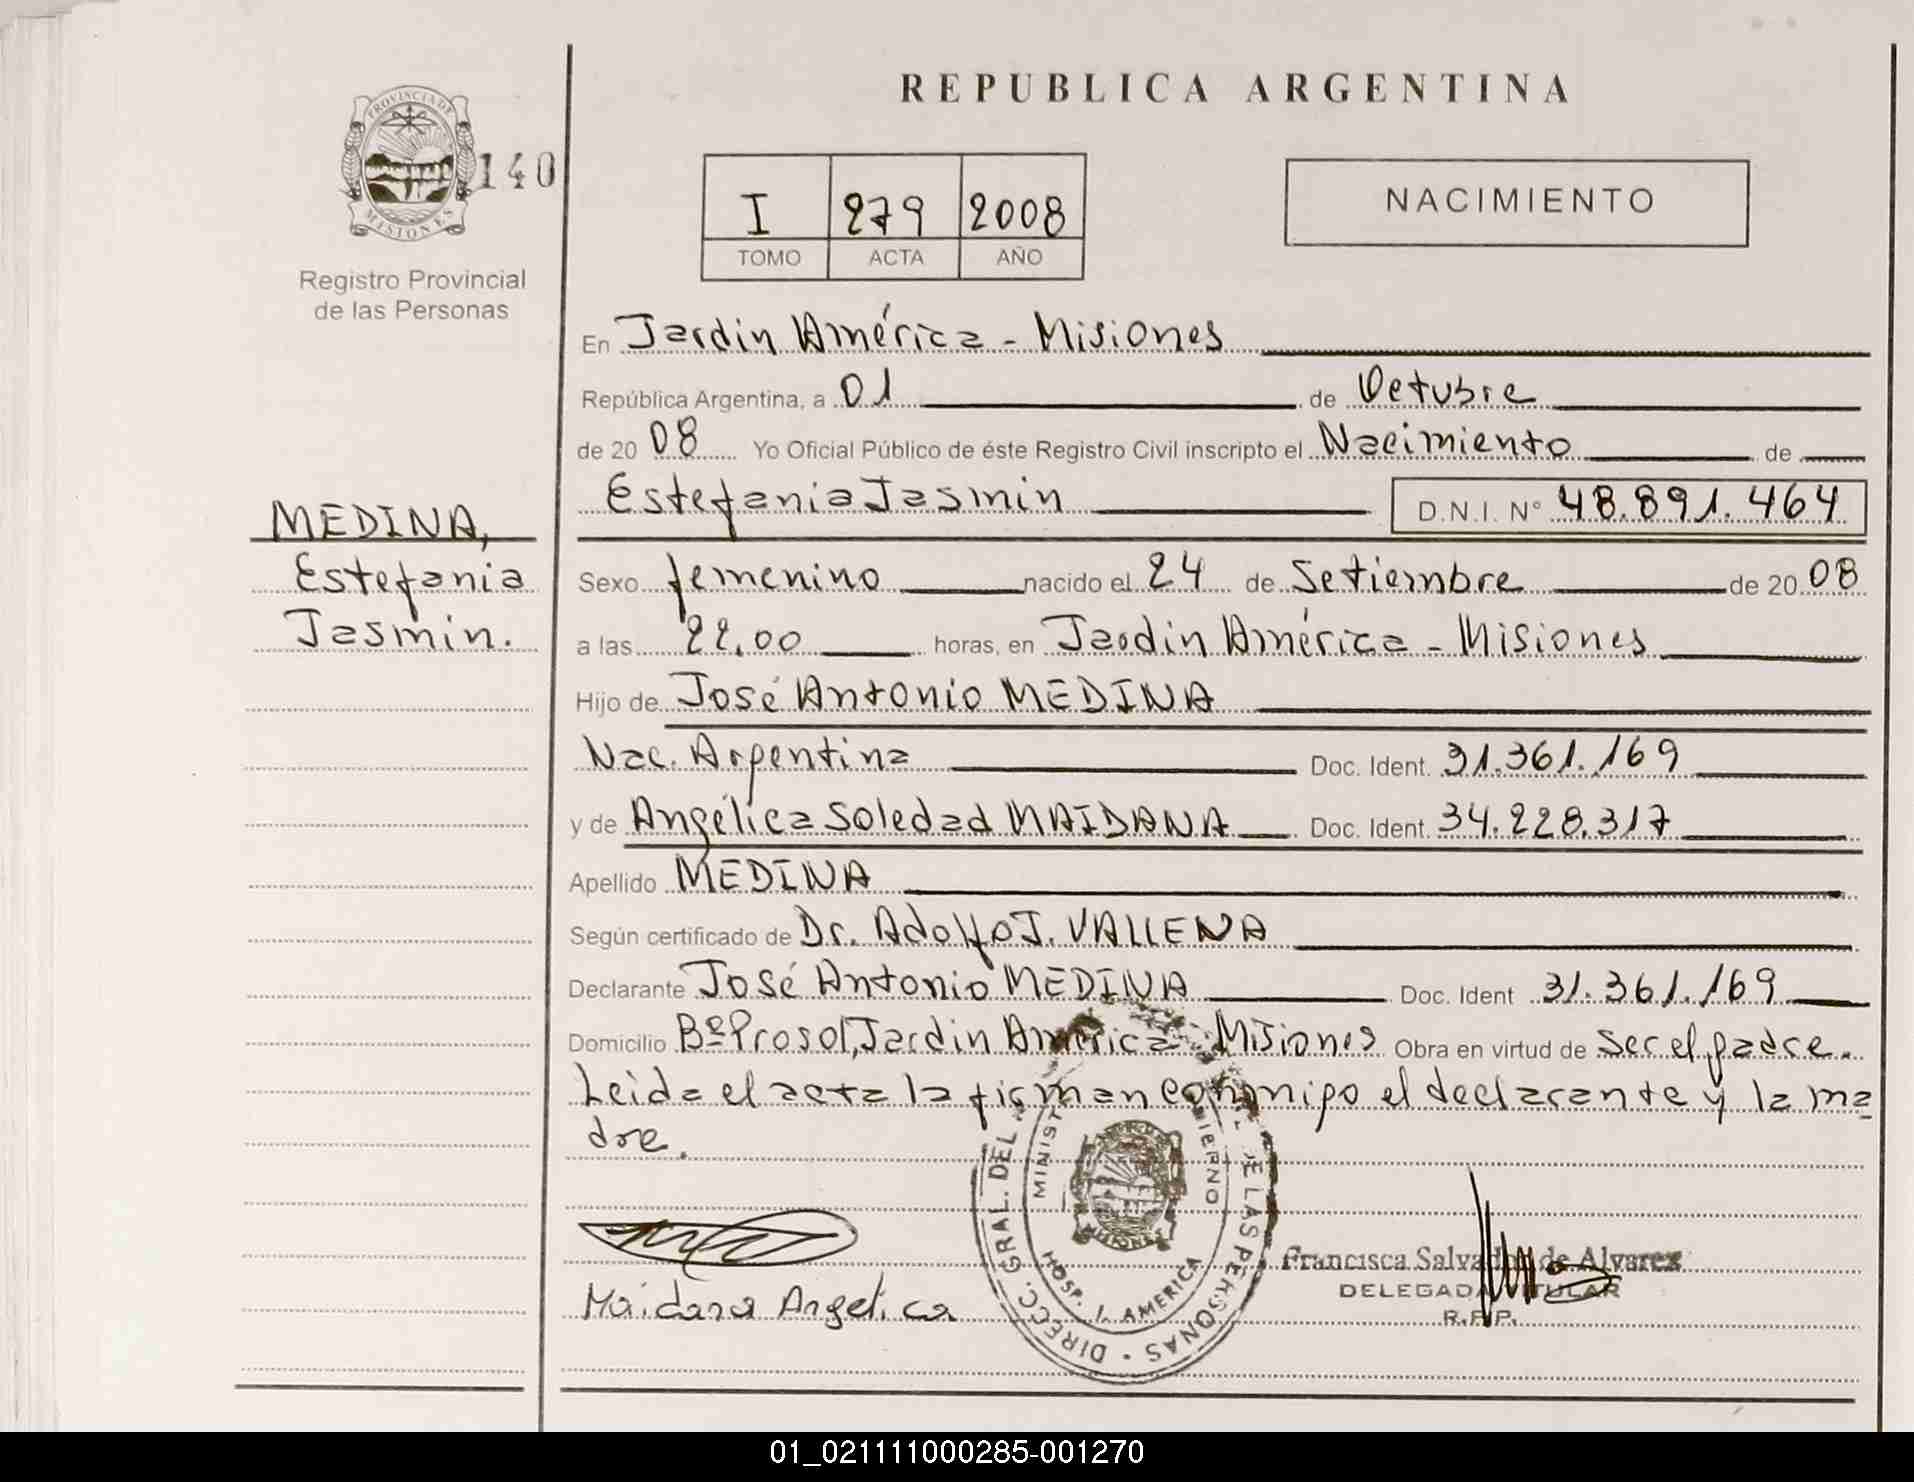 REPUBLICA ARGENTINA
PROVINCIA DE
MISIONES
140
Registro Provincial
de las Personas
I 279 2008
TOMO ACTA AÑO
NACIMIENTO
En Jardin América - Misiones
República Argentina, a 01 de Octubre
de 20 08 Yo Oficial Público de éste Registro Civil inscripto el Nacimiento de
Estefania Jasmin D.N.I. N° 48.891.464
MEDINA,
Estefania
Jasmin.
Sexo femenino nacido el 24 de Setiembre de 20 08
a las 22,00 horas, en Jardin América - Misiones
Hijo de José Antonio MEDINA
Nac. Argentina Doc. Ident. 31.361.169
y de Angélica Soledad MAIDANA Doc. Ident. 34.228.317
Apellido MEDINA
Según certificado de Dr. Adolfo J. VALLENA
Declarante José Antonio MEDINA Doc. Ident 31.361.169
Domicilio Bº Prosol, Jardin América - Misiones Obra en virtud de ser el padre.
Leida el acta la firman conmigo el declarante y la ma
dre.
DIRECC. GRAL. DEL DE LAS PERSONAS
HOSP. J. AMERICA
MISIONES
Francisca Salvador de Alvarez
DELEGADA TITULAR
R.P.P.
Maidana Angelica
01_021111000285-001270